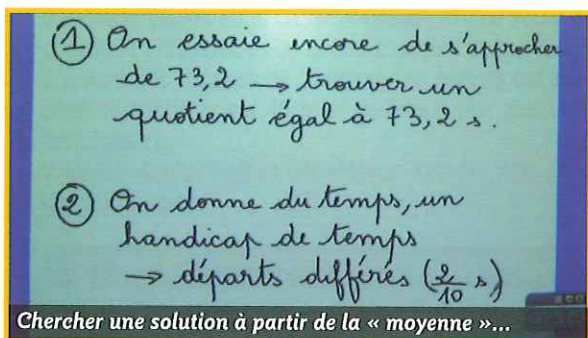 ① On essaie encore de s'approcher
de 73,2 → trouver un
quotient égal à 73,2 s.
② On donne du temps, un
handicap de temps
→ départs différés (2/10 s)
Chercher une solution à partir de la « moyenne »...